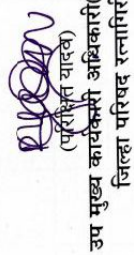 (परिक्षित यादव)
उप मुख्य कार्यकारी अधिकारी(
जिल्हा परिषद रत्नागिरी